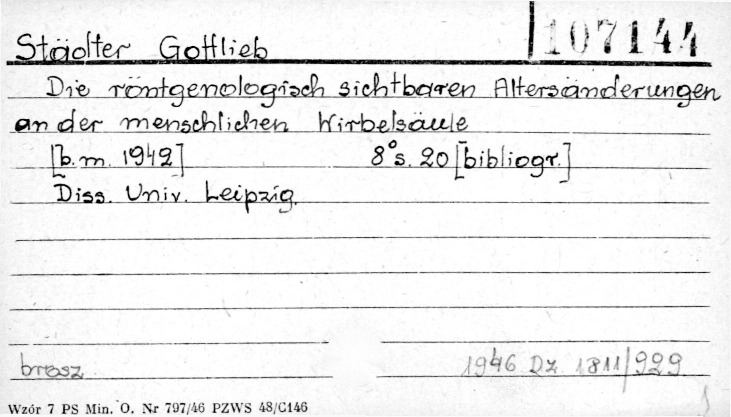 Städter Gottlieb 107144
Die röntgenologisch sichtbaren Altersänderungen
an der menschlichen Wirbelsäule
[b.m. 1942] 8° s. 20 [bibliogr.]
Diss. Univ. Leipzig.
brosz. 1946 Dz 1811/929
Wzór 7 PS Min. O. Nr 797/46 PZWS 48/C146